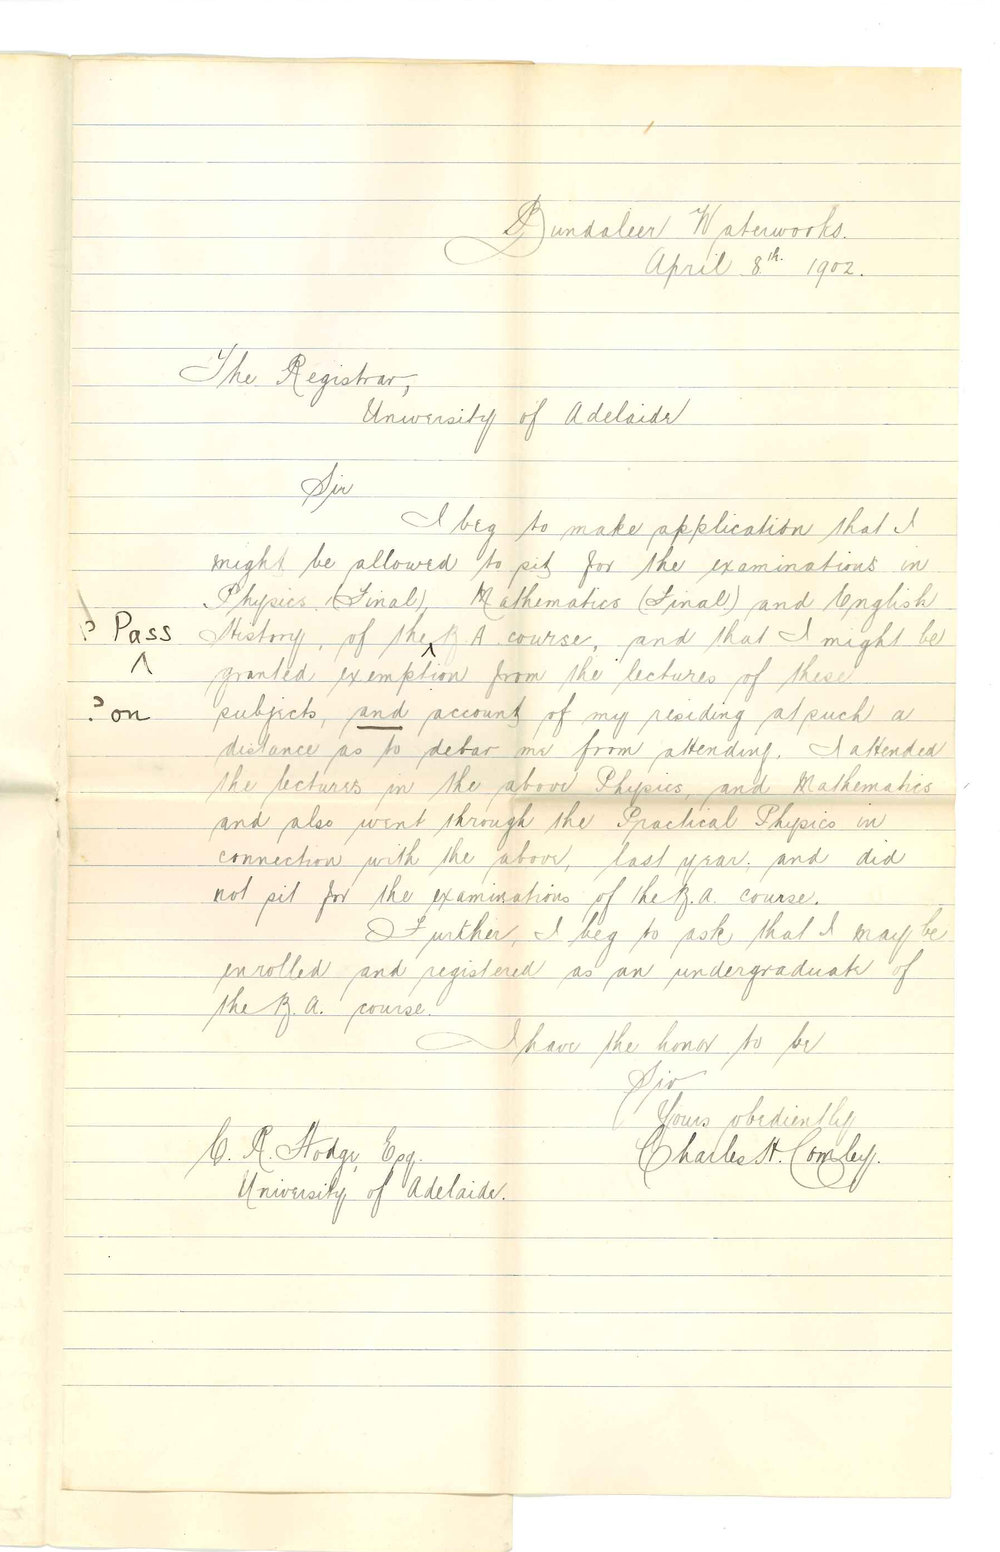 Bundaleer Waterworks.
April 8th. 1902.
The Registrar,
University of Adelaide
Sir
I beg to make application that I
might be allowed to sit for the examinations in
Physics (Final), Mathematics (Final) and English
? Pass History, of the ^ B.A. course, and that I might be
^
granted exemption from the lectures of these
? on subjects, and account of my residing at such a
distance as to debar me from attending. I attended
the lectures in the above Physics, and Mathematics
and also went through the Practical Physics in
connection with the above, last year, and did
not sit for the examinations of the B.A. course.
Further, I beg to ask that I may be
enrolled and registered as an undergraduate of
the B.A. course.
I have the honor to be
Sir
Yours obediently
Charles H. Comley.
C. R. Hodge, Esq.
University of Adelaide.